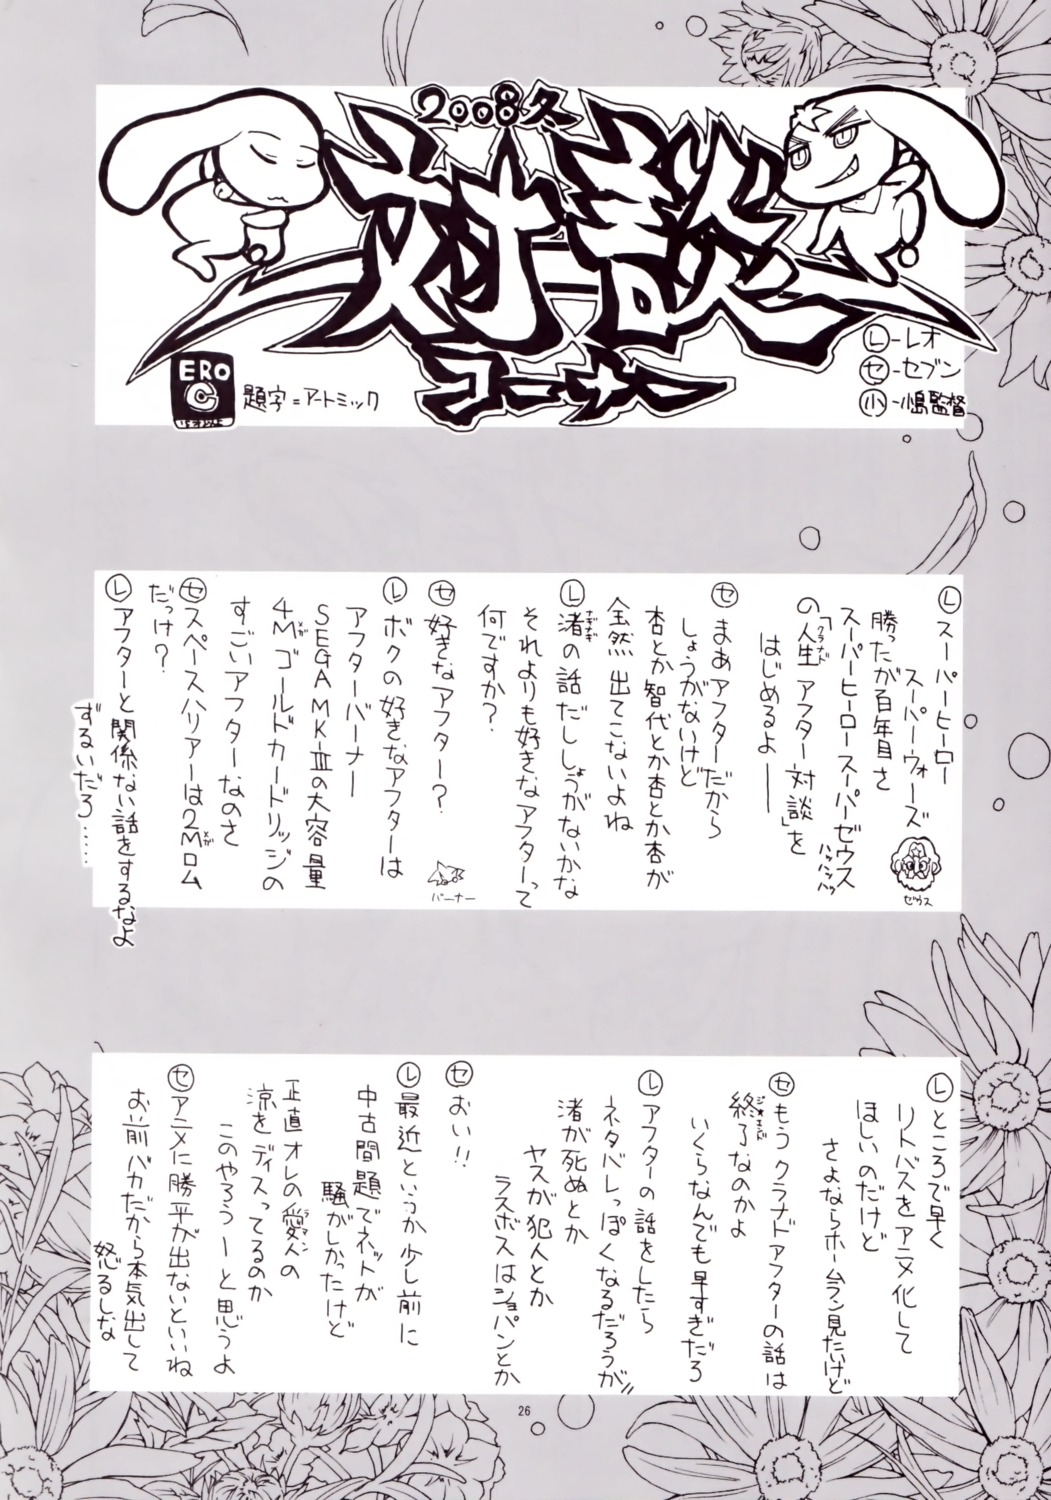 2008冬
対談
コーナー
ERO
C
題字=アートミック
Ⓛ-レオ
セ-セブン
小-小島監督
Ⓛスーパーヒーロー
スーパーウォーズ
勝ったが百年目さ
スーパーヒーロースーパーゼウス
ゼウス
の「人生アフター対談」を
クラナド
はじめるよー
セ まあアフターだから
しょうがないけど
杏とか智代とか杏とか杏が
全然出てこないよね
Ⓛ渚の話だししょうがないかな
ナギサ
それよりも好きなアフターって
何ですか?
セ 好きなアフター?
バーナー
Ⓛボクの好きなアフターは
アフターバーナー
SEGA MK-Ⅲの大容量
4Mゴールドカードリッジの
メガ
すごいアフターなのさ
セ スペースハリアーは2Mロム
メガ
だっけ?
Ⓛアフターと関係ない話をするなよ
ずるいだろ……
Ⓛところで早く
リトバスをアニメ化して
ほしいのだけど
さよならホームラン見たいけど
セ もうクラナドアフターの話は
終了なのかよ
ジ・エンド
いくらなんでも早すぎだろ
Ⓛアフターの話をしたら
ネタバレっぽくなるだろうが!!
渚が死ぬとか
ヤスが犯人とか
ラスボスはショパンとか
セ おい!!
Ⓛ最近というか少し前に
中古問題でネットが
騒がしかったけど
正直オレの愛人の
ラマン
涼をディスってるのか
このやろうーと思うよ
セ アニメに勝平が出ないといいね
お前バカだから本気出して
怒るしな
26